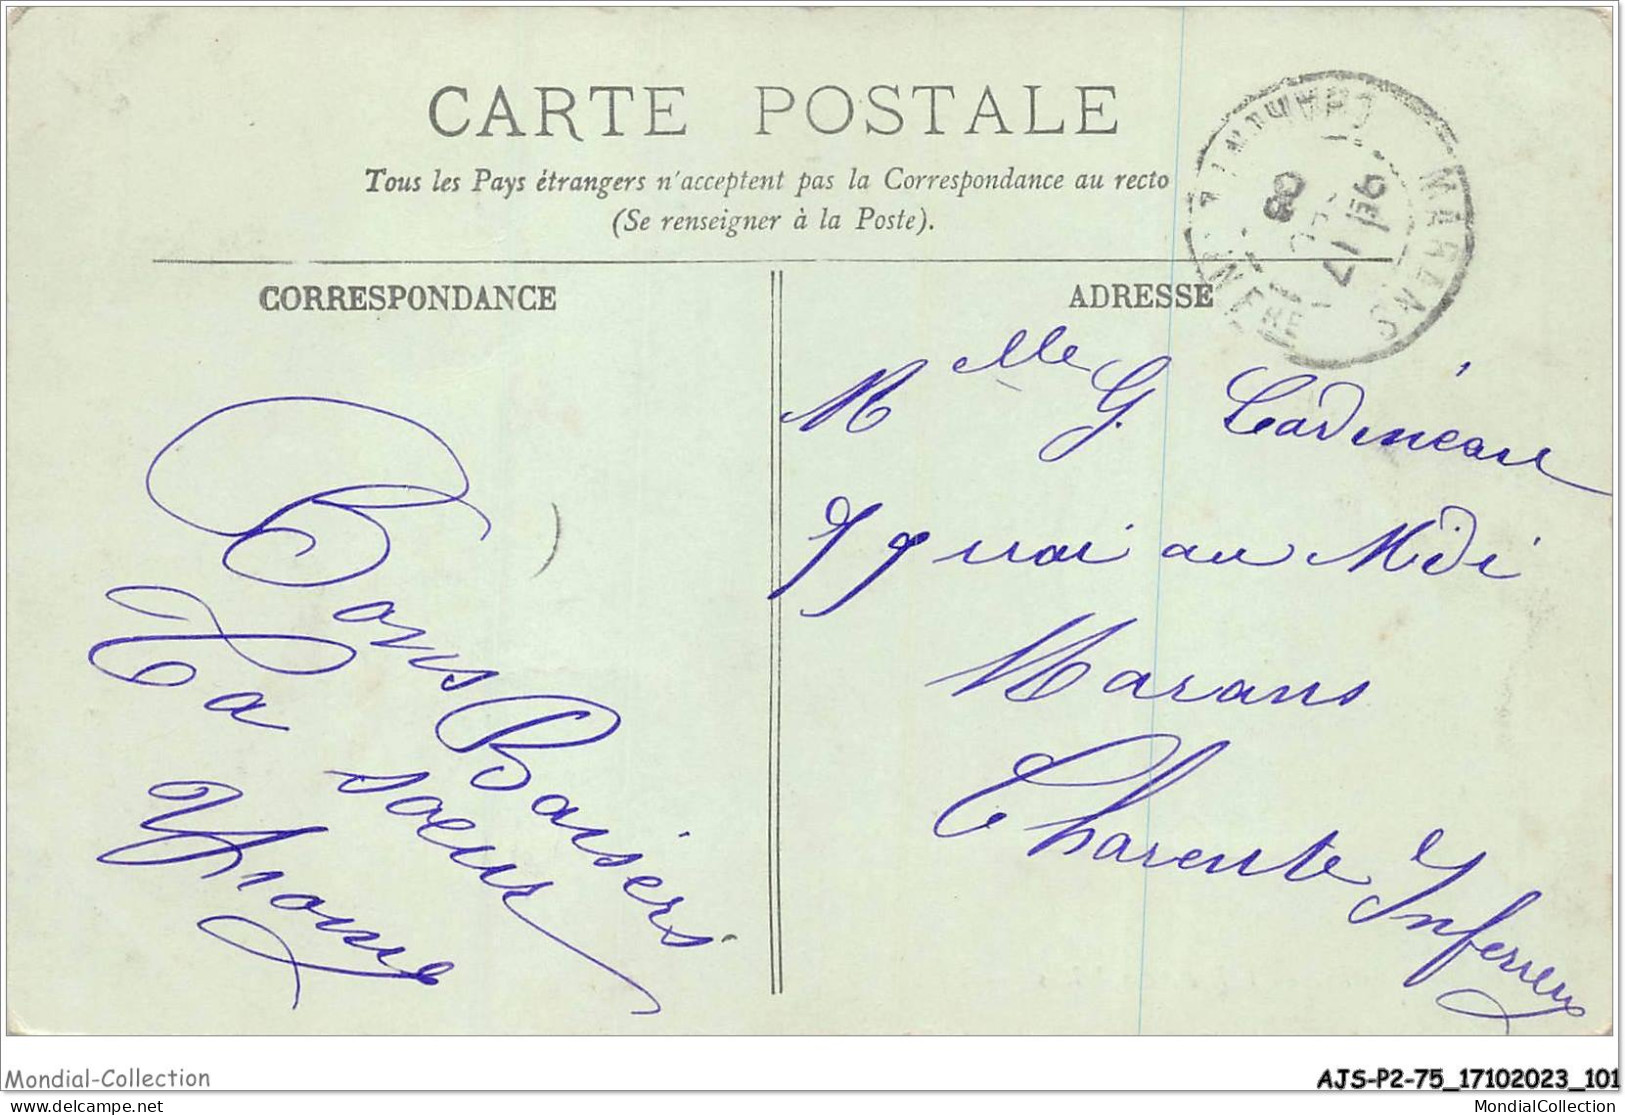 CARTE POSTALE
Tous les Pays étrangers n'acceptent pas la Correspondance au recto
(Se renseigner à la Poste).
CORRESPONDANCE
ADRESSE
MARANS
Bons Baisers
Ta soeur
Yvonne
Melle G. Cadineau
quai au Midi
Marans
Charente Inferieure
Mondial-Collection
AJS-P2-75_17102023_101
MondialCollection